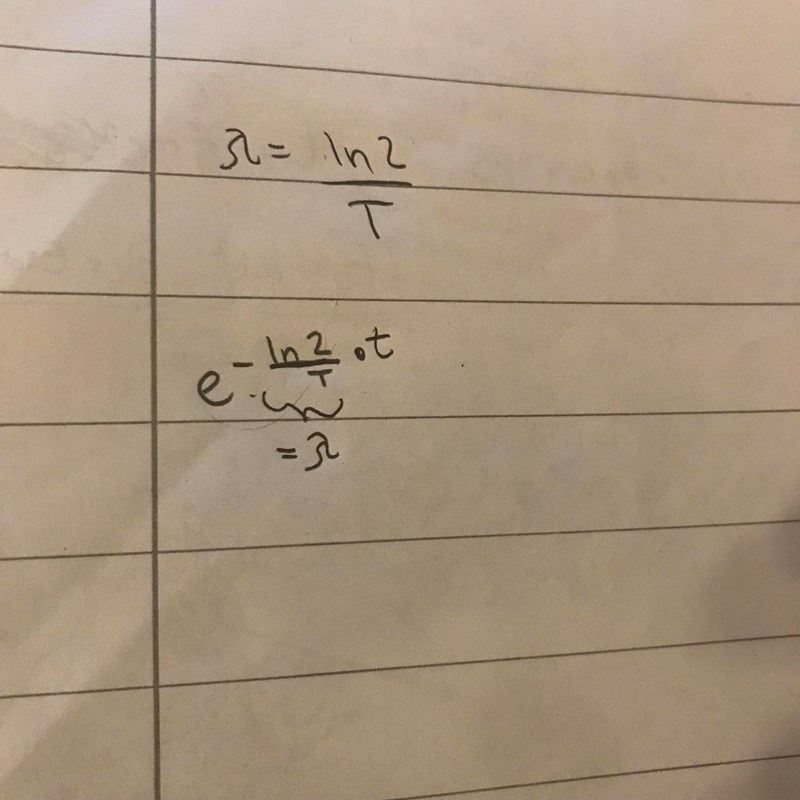 λ = ln2/T
e^(-ln2/T · t)
= λ